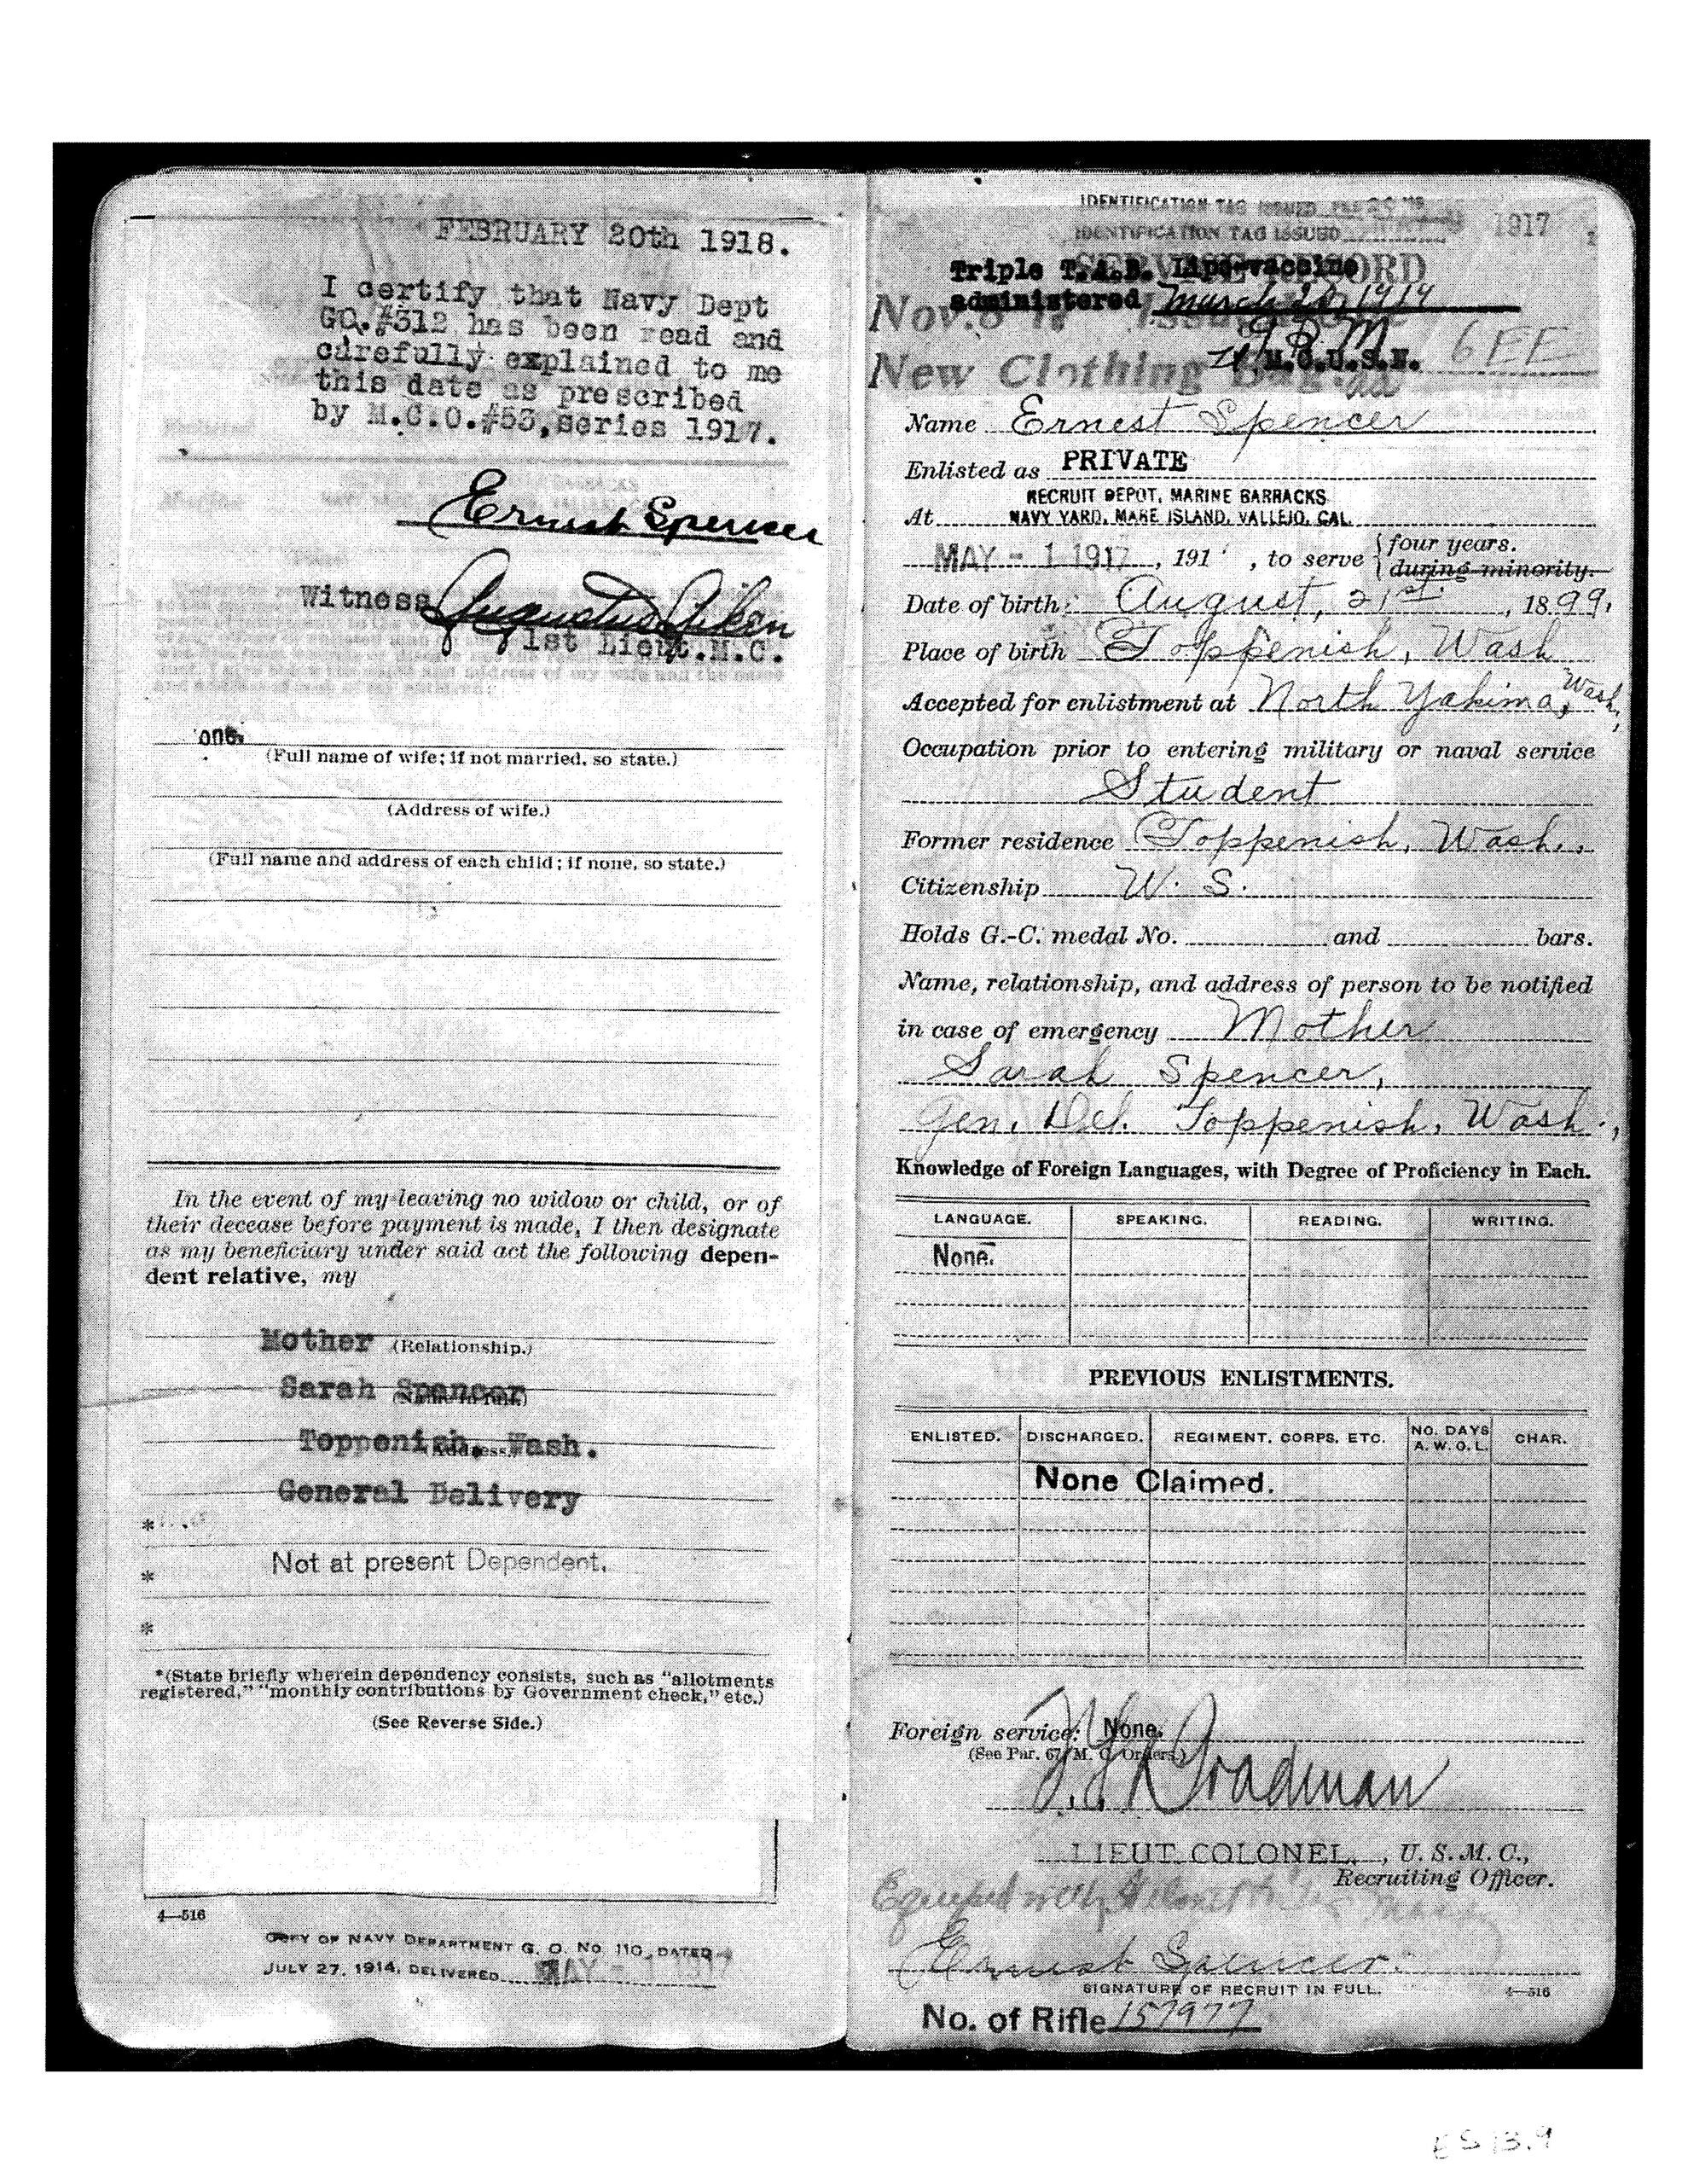 FEBRUARY 20th 1918.
I certify that Navy Dept
GO.#312 has been read and
carefully explained to me
this date as prescribed
by M.C.O.#53, series 1917.
Ernest Spencer
Witness Augustus Aiken
1st Lieut.M.C.
one.
(Full name of wife; if not married, so state.)
(Address of wife.)
(Full name and address of each child; if none, so state.)
In the event of my leaving no widow or child, or of
their decease before payment is made, I then designate
as my beneficiary under said act the following depen-
dent relative, my
Mother (Relationship.)
Sarah Spencer
Toppenish, Wash.
General Delivery
*
* Not at present Dependent.
*
*(State briefly wherein dependency consists, such as "allotments
registered," "monthly contributions by Government check," etc.)
(See Reverse Side.)
4—516
COPY OF NAVY DEPARTMENT G. O. NO. 110, DATED
JULY 27, 1914, DELIVERED MAY - 1 1917
IDENTIFICATION TAG ISSUED
IDENTIFICATION TAG ISSUED 1917
SERVICE RECORD
Triple T.A.B. Lipo-vaccine
administered March 20, 1919
M.C.U.S.N.
Nov. 8 17 Issued one
New Clothing Bag.
6EE
Name Ernest Spencer
Enlisted as PRIVATE
RECRUIT DEPOT, MARINE BARRACKS
At NAVY YARD, MARE ISLAND, VALLEJO, CAL.
MAY - 1 1917, 191 , to serve four years.
during minority.
Date of birth: August, 21st, 1899,
Place of birth Toppenish, Wash
Accepted for enlistment at North Yakima, Wash,
Occupation prior to entering military or naval service
Student
Former residence Toppenish, Wash.,
Citizenship U. S.
Holds G.-C. medal No. and bars.
Name, relationship, and address of person to be notified
in case of emergency Mother
Sarah Spencer,
Gen. Del. Toppenish, Wash.,
Knowledge of Foreign Languages, with Degree of Proficiency in Each.
LANGUAGE. SPEAKING. READING. WRITING.
None.
PREVIOUS ENLISTMENTS.
ENLISTED. DISCHARGED. REGIMENT, CORPS, ETC. NO. DAYS A. W. O. L. CHAR.
None Claimed.
Foreign service: None.
(See Par. 67, M. C. Orders.)
LIEUT. COLONEL, U. S. M. C.,
Recruiting Officer.
Equipped with
Ernest Spencer.
SIGNATURE OF RECRUIT IN FULL.
4—516
No. of Rifle 157977
ES 13.9